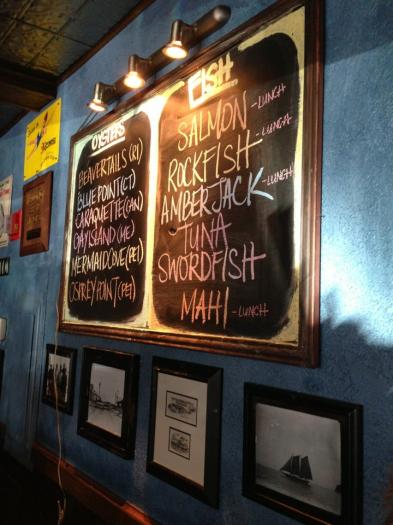 OYSTERS
BEAVERTAILS (RI)
BLUE POINT (CT)
CARAQUETTE (CAN)
MERMAID COVE (PEI)
OSPREY POINT (PEI)
FISH
SALMON -LUNCH
ROCKFISH -LUNCH
AMBERJACK -LUNCH
TUNA
SWORDFISH
MAHI -LUNCH